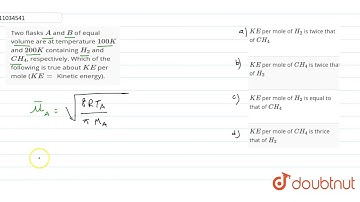 11034541
Two flasks A and B of equal
volume are at temperature 100K
and 200K containing H₂ and
CH₄, respectively. Which of the
following is true about KE per
mole (KE = Kinetic energy).
a) KE per mole of H₂ is twice that
of CH₄
b) KE per mole of CH₄ is twice that
of H₂
c) KE per mole of H₂ is equal to
that of CH₄
d) KE per mole of CH₄ is thrice
that of H₂
μ̄_A = √(8RT_A / π M_A)
doubtnut